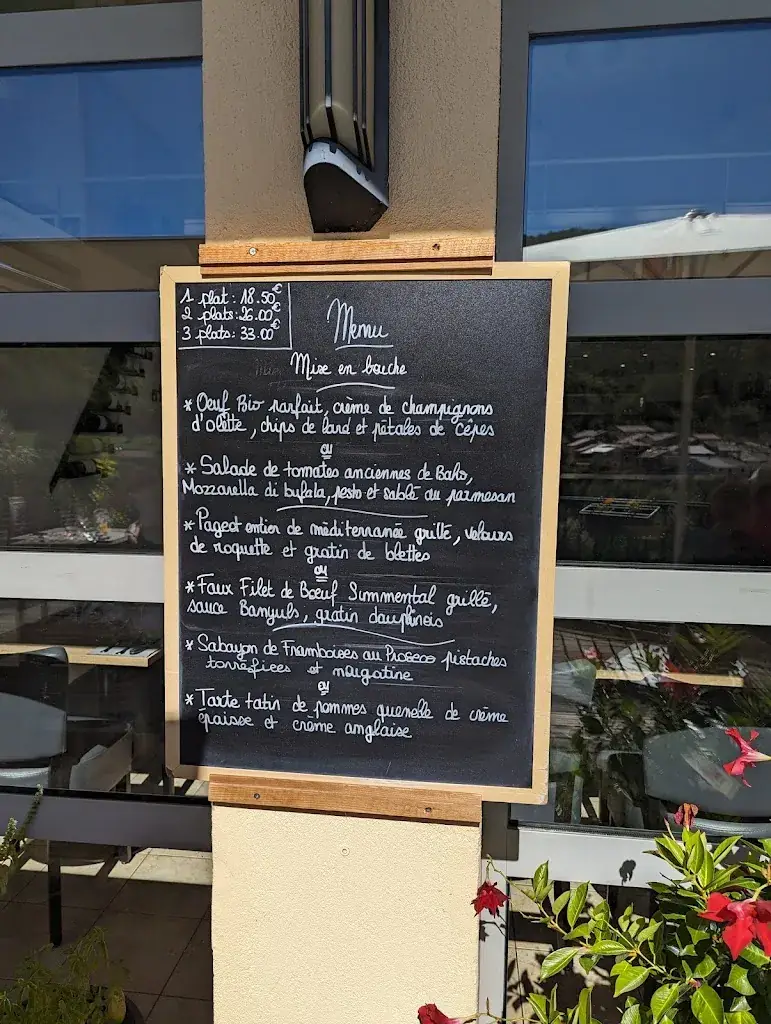 1 plat : 18.50€
2 plats : 26.00€
3 plats : 33.00€
Menu
Mise en bouche
* Oeuf Bio parfait, crème de champignons
d'olette, chips de lard et pétales de Cêpes
ou
* Salade de tomates anciennes de Baho,
Mozzarella di bufala, pesto et sablé au parmesan
* Pageot entier de méditerranée grillé, velours
de roquette et gratin de blettes
ou
* Faux Filet de Boeuf Summental grillé,
sauce Banyuls, gratin dauphinois
* Sabayon de Framboises au Proseco pistaches
torréfiées et nougatine
ou
* Tarte tatin de pommes quenelle de crème
épaisse et crème anglaise